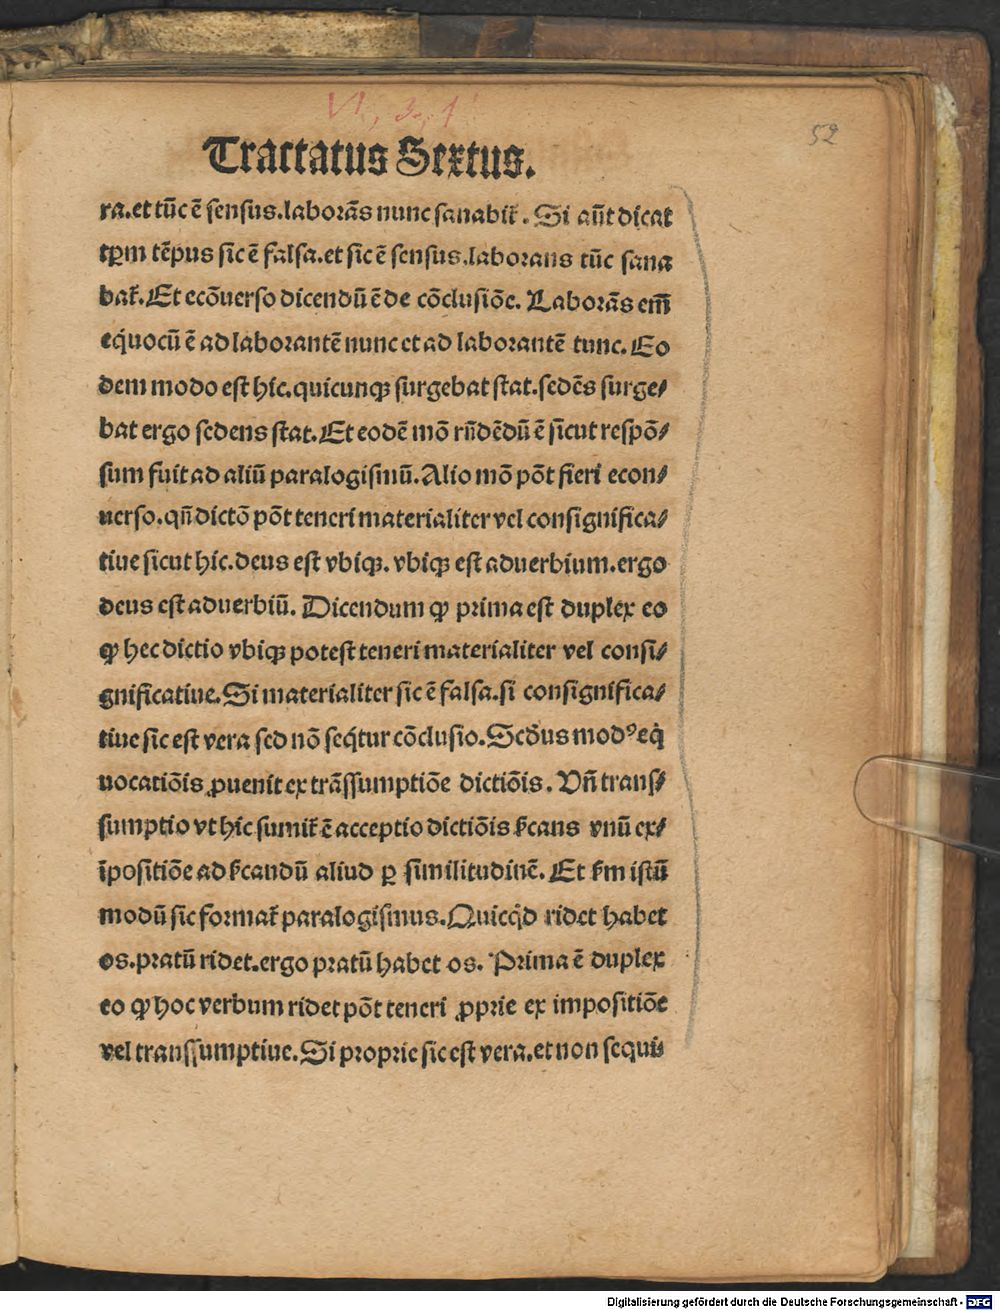 VI, 3, 1
52
Tractatus Sextus.
ra.et tūc ē sensus.laborās nunc sanabit̄. Si aūt dicat
tp̄m tēpus sic ē falsa.et sic ē sensus.laborans tūc sana
bat̄. Et ecōuerso dicendū ē de cōclusiōe. Laborās em̄
eq́uocū ē ad laborantē nunc et ad laborantē tunc. Eo
dem modo est hic.quicunqꝫ surgebat stat.sedēs surge⸗
bat ergo sedens stat. Et eodē mō rn̄dēdū ē sicut respō⸗
sum fuit ad aliū paralogismū. Alio mō pōt fieri econ⸗
uerso.qn̄ dictō pōt teneri materialiter vel consignifica⸗
tiue sicut hic.deus est vbiqꝫ. vbiqꝫ est aduerbium.ergo
deus est aduerbiū. Dicendum ꝙ prima est duplex eo
ꝙ hec dictio vbiqꝫ potest teneri materialiter vel consi⸗
gnificatiue. Si materialiter sic ē falsa.si consignifica⸗
tiue sic est vera sed nō seq́tur cōclusio. Scd̄us modꝰ eq́
uocatiōis ꝓuenit ex trāssumptiōe dictiōis. Vn̄ trans⸗
sumptio vt hic sumit̄ ē acceptio dictiōis sīcans vnū ex⸗
īpositiōe ad sīcandū aliud ꝑ similitudinē. Et sm̄ istū
modū sic format̄ paralogismus. Quicq́d ridet habet
os.pratū ridet.ergo pratū habet os. Prima ē duplex
eo ꝙ hoc verbum ridet pōt teneri ꝓprie ex impositiōe
vel transsumptiue. Si proprie sic est vera.et non sequi⸗
Digitalisierung gefördert durch die Deutsche Forschungsgemeinschaft - DFG